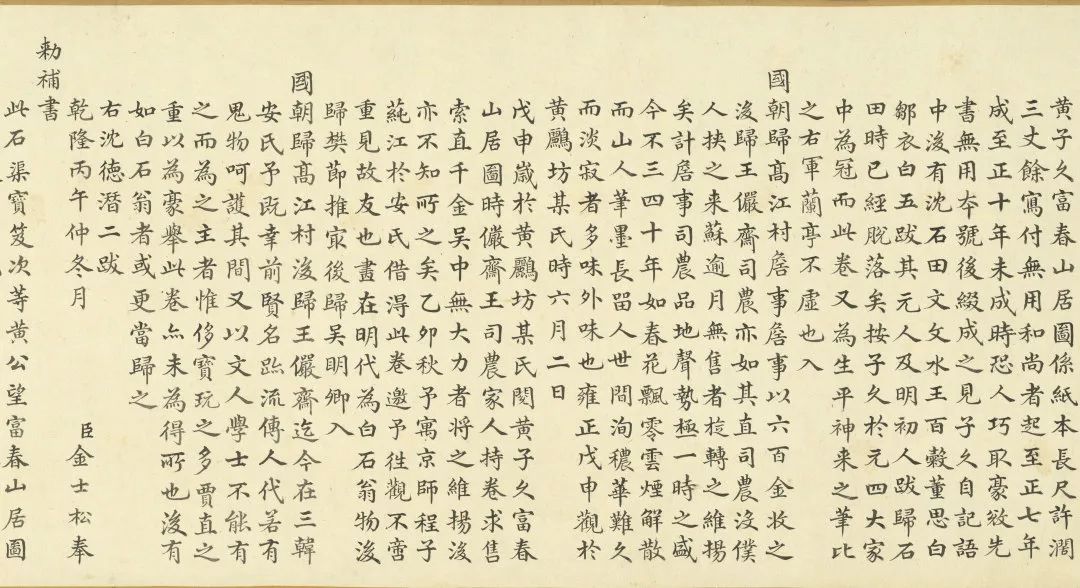 黃子久富春山居圖係紙本長尺許濶
三丈餘寫付無用和尚者起至正七年
成至正十年未成時恐人巧取豪敓先
書無用夲號後綴成之見子久自記語
中後有沈石田文文水王百穀董思白
鄒衣白五跋其元人及明初人跋歸石
田時已經脫落矣按子久於元四大家
中為冠而此卷又為生平神来之筆比
之右軍蘭亭不虛也入
國朝歸髙江村詹事詹事以六百金收之
後歸王儼齋司農亦如其直司農沒僕
人挾之来蘇逾月無售者㫌轉之維揚
矣計詹事司農品地聲勢極一時之盛
今不三四十年如春花飄零雲煙解散
而山人筆墨長留人世間洵穠華難久
而淡寂者多味外味也雍正戊申觀於
黃鸝坊某氏時六月二日
戊申嵗於黃鸝坊某氏閱黃子久富春
山居圖時儼齋王司農家人持卷求售
索直千金吳中無大力者將之維揚後
亦不知所之矣乙卯秋予寓京師程子
蒓江於安氏借得此卷邀予徃觀不啻
重見故友也畫在明代為白石翁物後
歸樊節推㝡後歸吴明卿入
國朝歸髙江村後歸王儼齋迄今在三韓
安氏予既幸前賢名跡流傳人代若有
鬼物呵護其間又以文人學士不能有
之而為之主者惟侈寶玩之多賈直之
重以為豪舉此卷亦未為得所也後有
如白石翁者或更當歸之
右沈德潛二跋
乾隆丙午仲冬月　臣金士松奉
勅補書
此石渠寶笈次等黃公望富春山居圖